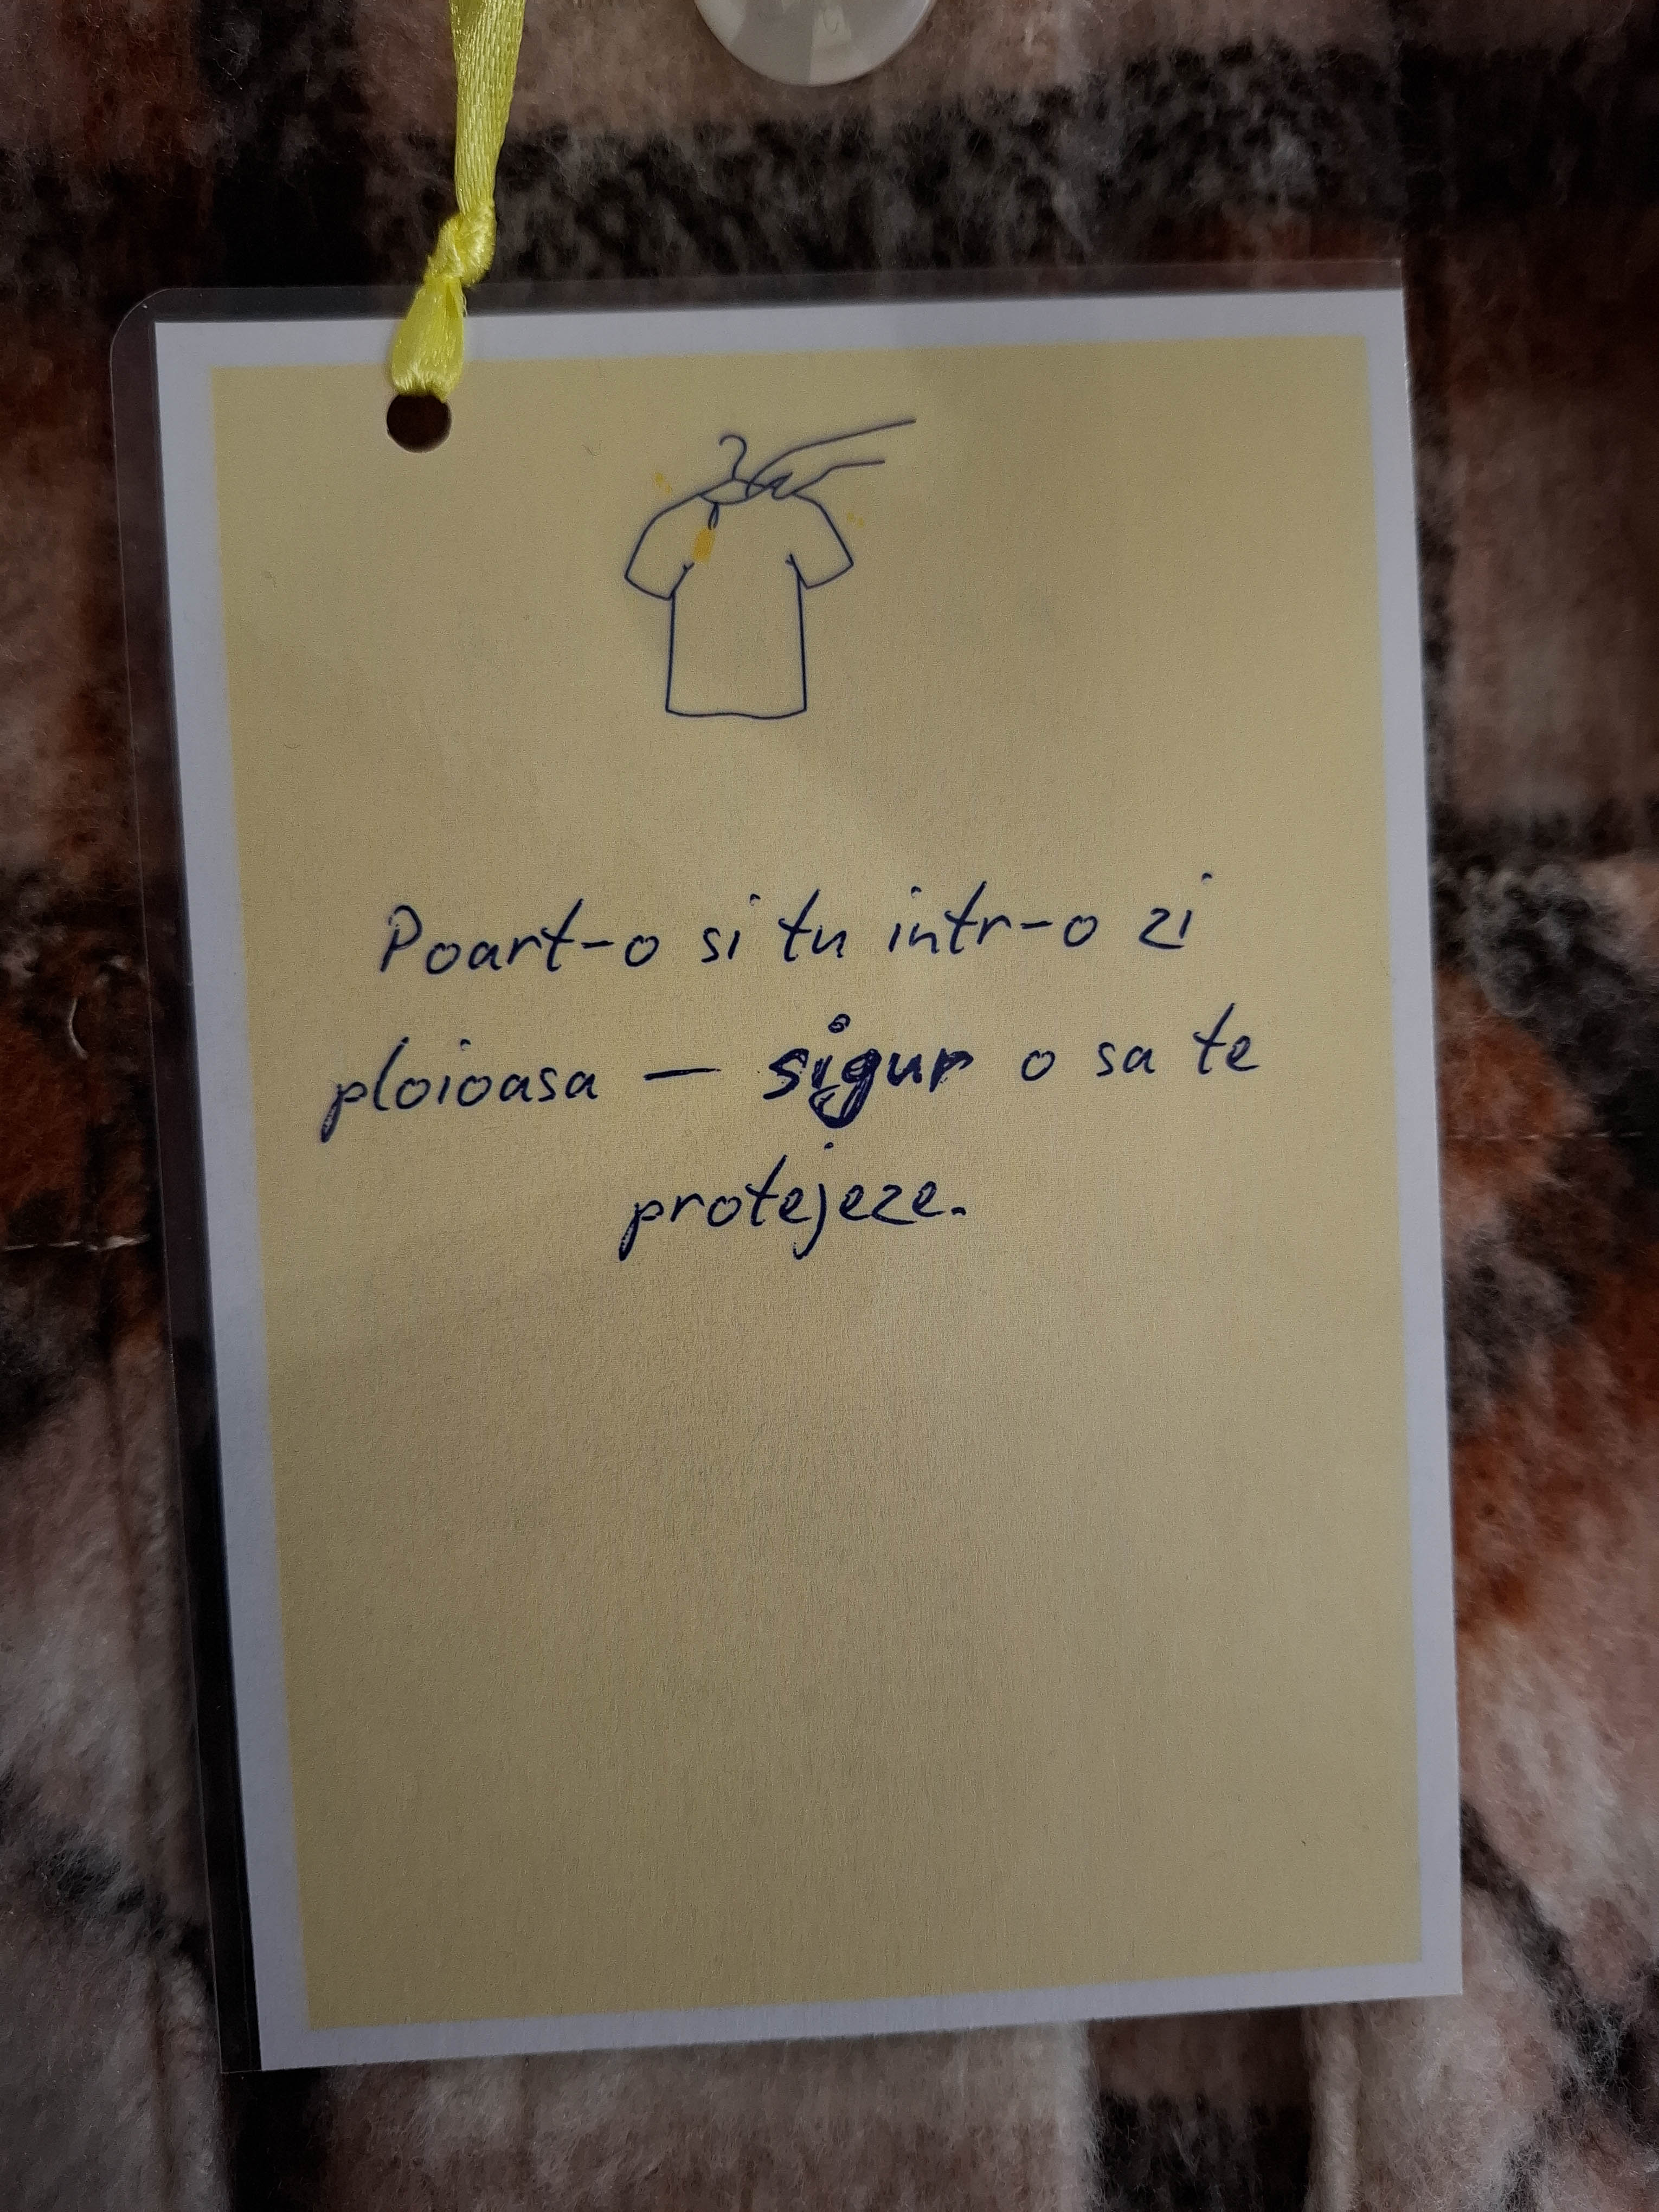 Poart-o si tu intr-o zi
ploioasa — sigur o sa te
protejeze.